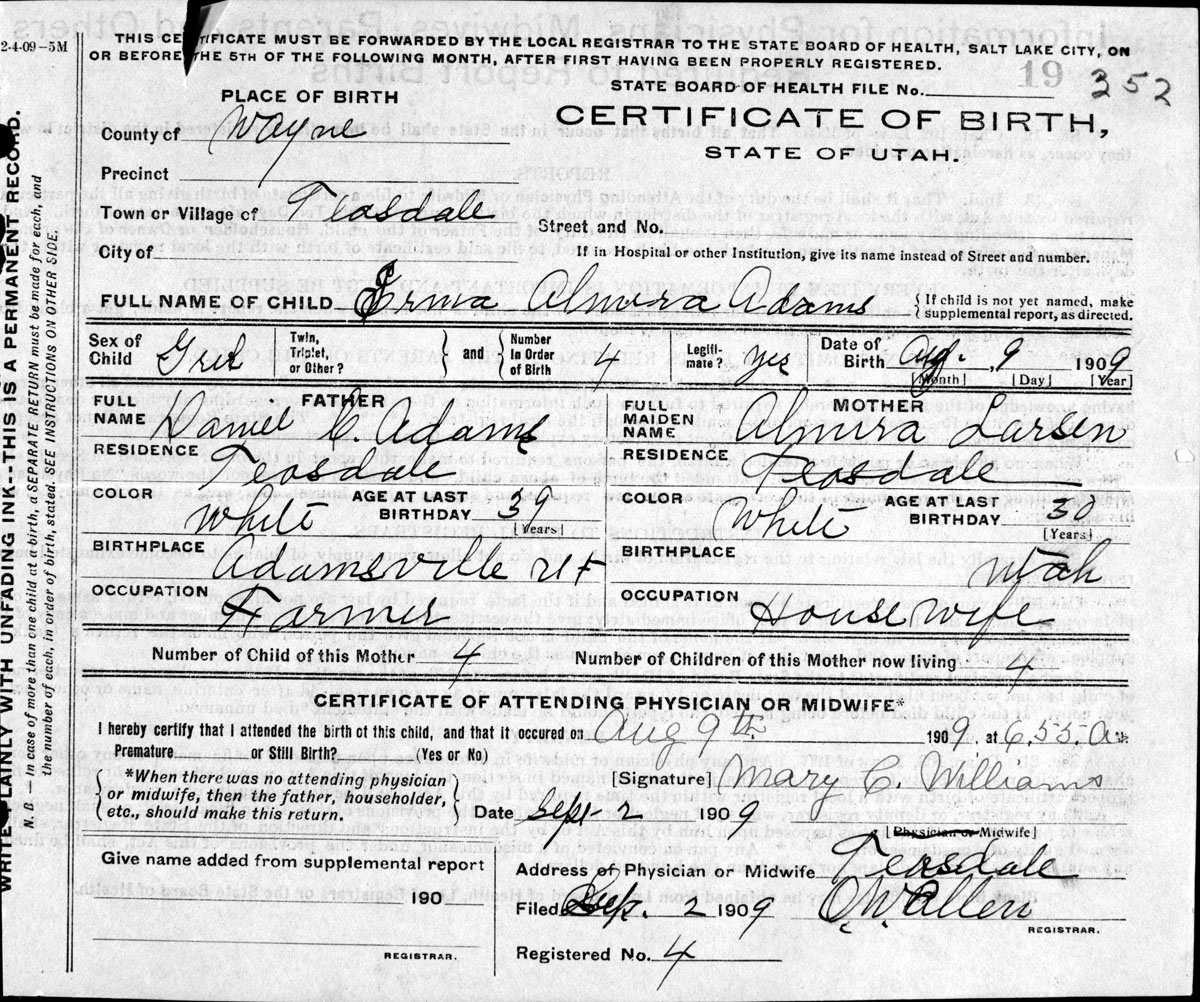 2-4-09-5M
THIS CERTIFICATE MUST BE FORWARDED BY THE LOCAL REGISTRAR TO THE STATE BOARD OF HEALTH, SALT LAKE CITY, ON
OR BEFORE THE 5TH OF THE FOLLOWING MONTH, AFTER FIRST HAVING BEEN PROPERLY REGISTERED.
19 352
STATE BOARD OF HEALTH FILE No.
PLACE OF BIRTH
CERTIFICATE OF BIRTH,
STATE OF UTAH.
County of Wayne
Precinct
Town or Village of Teasdale
Street and No.
City of
If in Hospital or other Institution, give its name instead of Street and number.
FULL NAME OF CHILD Erma Almira Adams
{If child is not yet named, make
supplemental report, as directed.
Sex of Child Girl
Twin, Triplet, or Other?
and
Number In Order of Birth 4
Legitimate? yes
Date of Birth Aug. 9 1909
[Month] [Day] [Year]
FATHER
FULL NAME Daniel C. Adams
RESIDENCE Teasdale
COLOR White
AGE AT LAST BIRTHDAY 39
[Years]
BIRTHPLACE Adamsville Ut
OCCUPATION Farmer
MOTHER
FULL MAIDEN NAME Almira Larsen
RESIDENCE Teasdale
COLOR White
AGE AT LAST BIRTHDAY 30
[Years]
BIRTHPLACE Utah
OCCUPATION House wife
Number of Child of this Mother 4
Number of Children of this Mother now living 4
CERTIFICATE OF ATTENDING PHYSICIAN OR MIDWIFE*
I hereby certify that I attended the birth of this child, and that it occured on Aug 9th 1909. at 6.55. A M.
Premature or Still Birth? (Yes or No)
*When there was no attending physician
or midwife, then the father, householder,
etc., should make this return.
[Signature] Mary C. Williams
Date Sept-2 1909
[Physician or Midwife]
Give name added from supplemental report
190
REGISTRAR.
Address of Physician or Midwife Teasdale
Filed Sep. 2 1909
Allen
REGISTRAR.
Registered No. 4
WRITE PLAINLY WITH UNFADING INK--THIS IS A PERMANENT RECORD.
N. B. — In case of more than one child at a birth, a SEPARATE RETURN must be made for each, and
the number of each, in order of birth, stated. SEE INSTRUCTIONS ON OTHER SIDE.